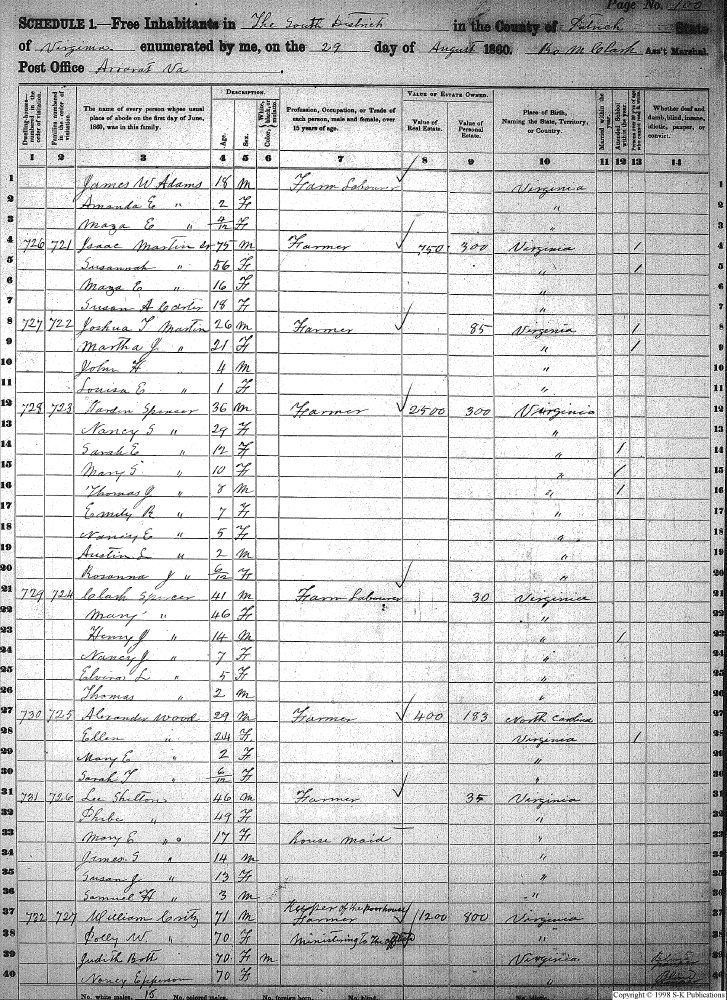 Page No. 100
SCHEDULE 1.—Free Inhabitants in The South District in the County of Patrick State
of Virginia enumerated by me, on the 29 day of August 1860. M Clark Ass't Marshal.
Post Office Ararat Va
DESCRIPTION. VALUE OF ESTATE OWNED.
Dwelling-houses—numbered in the order of visitation. Families numbered in the order of visitation. The name of every person whose usual place of abode on the first day of June, 1860, was in this family. Age. Sex. Color, White, black, or mulatto. Profession, Occupation, or Trade of each person, male and female, over 15 years of age. Value of Real Estate. Value of Personal Estate. Place of Birth, Naming the State, Territory, or Country. Married within the year. Attended School within the year. Whether deaf and dumb, blind, insane, idiotic, pauper, or convict.
1 2 3 4 5 6 7 8 9 10 11 12 13 14
1 James W Adams 18 m Farm Labourer Virginia
2 Amanda E " 2 F "
3 E " 4/12 F "
4 726 721 Isaac Martin sr 75 m Farmer 750 300 Virginia / 4
5 Susannah " 56 F " / 5
6 E " 16 F " 6
7 Susan A Carter 18 F " 7
8 727 722 Joshua T Martin 26 m Farmer 85 Virginia / 8
9 Martha J " 21 F " / 9
10 John H 4 m " 10
11 Louisa E " 1 F " 11
12 728 723 Spencer 36 m Farmer 2500 300 Virginia 12
13 Nancy S " 29 F " 13
14 Sarah E " 12 F " / 14
15 Mary S " 10 F " / 15
16 Thomas J " 8 m " / 16
17 Emily R " 7 F " 17
18 Nancy E " 5 F " 18
19 Austin L " 2 m " 19
20 Rosanna J " 6/12 F " 20
21 729 724 Clark Spencer 41 m Farm Labourer 30 Virginia 21
22 Mary " 46 F " 22
23 Henry J " 14 m " / 23
24 Nancy J " 7 F " 24
25 L " 5 F " 25
26 Thomas " 2 m " 26
27 730 725 Alexander Wood 29 m Farmer 400 183 North Carolina 27
28 Ellen " 24 F Virginia / 28
29 Mary E " 2 F " 29
30 Sarah T " 6/12 F " 30
31 731 726 Lee Shelton 46 m Farmer 35 Virginia 31
32 Phibe " 49 F " 32
33 Mary E " 17 F house maid " 33
34 James S " 14 m " 34
35 Susan J " 13 F " 35
36 Samuel H " 3 m " 36
37 732 727 William Critz 71 m Keeper of the poorhouse Farmer 1200 800 Virginia 37
38 Polly W " 70 F Ministring to The " 38
39 Judith Bott 70 F m Virginia Blind
40 Nancy Epperson 70 F " Blind 40
No. white males, 15 No. colored males, No. foreign born, No. blind,
Copyright © 1998 S-K Publications